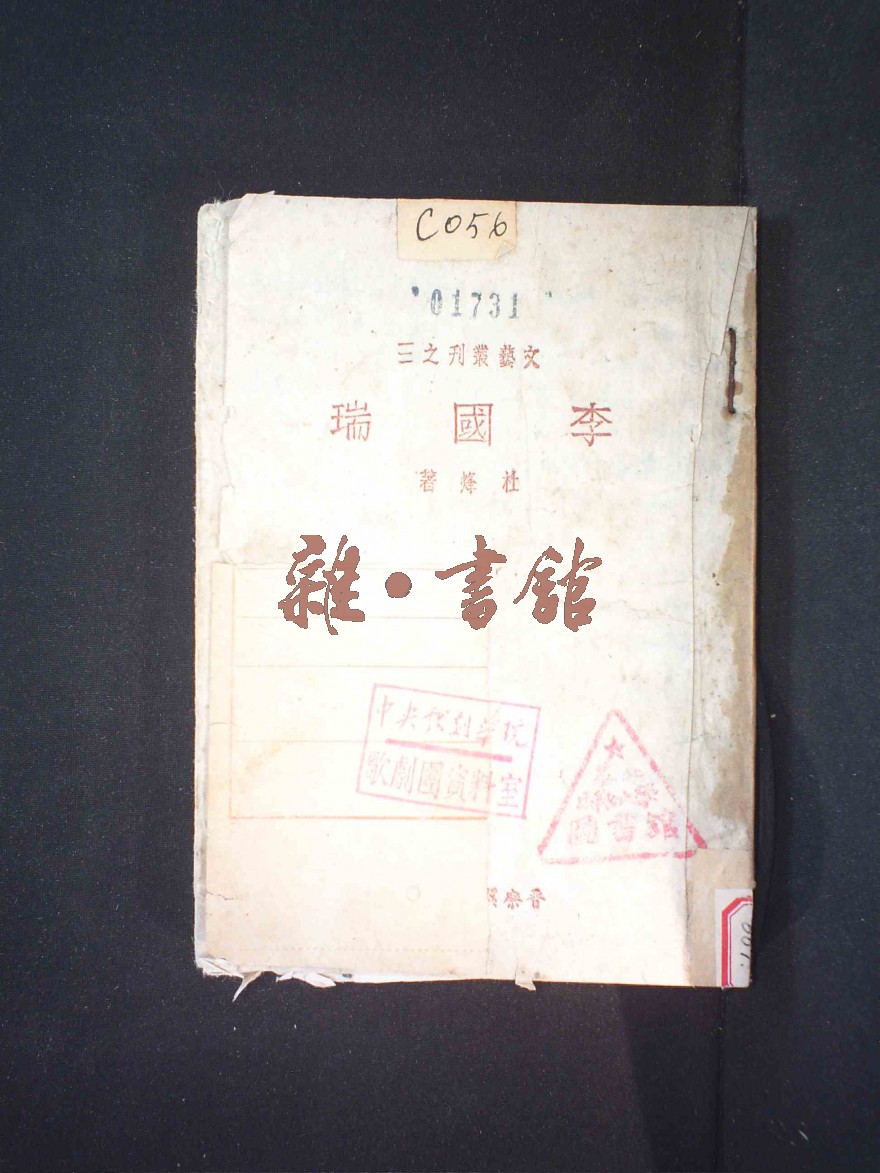 C056
01731
文藝叢刊之三
李國瑞
杜烽著
雜·書館
中央戲劇學院
歌劇團資料室
圖書館
晉察冀
001.